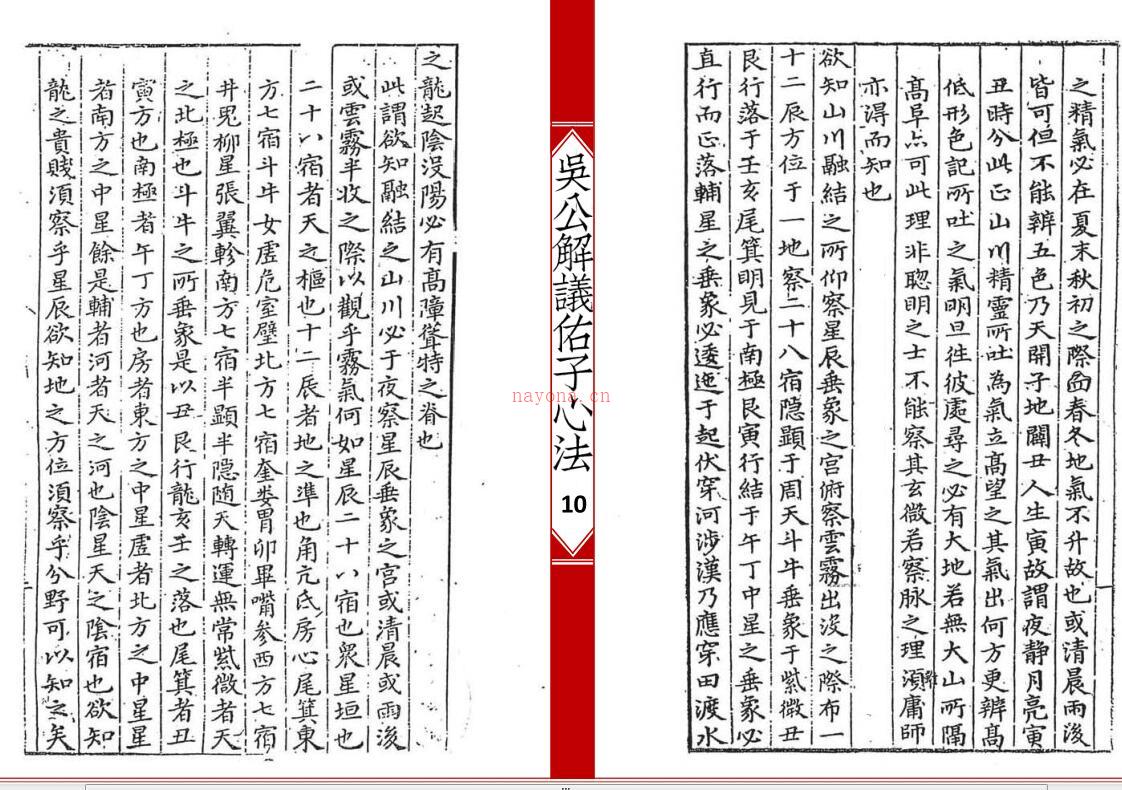 之精氣必在夏末秋初之際函春冬地氣不升故也或清晨雨後
皆可但不能辨五色乃天開子地闢丑人生寅故謂夜静月亮寅
丑時分此正山川精靈所吐為氣立高望之其氣出何方更辨高
低形色記所吐之氣明旦徃彼處尋之必有大地若無大山所隔
高阜亦可此理非聰明之士不能察其玄微若察脉之理須庸師
亦得而知也
欲知山川融結之所仰察星辰垂象之宫俯察雲霧出沒之際布一
十二辰方位于一地察二十八宿隐顕于周天斗牛垂象于紫微丑
艮行落于壬亥尾箕明見于南極艮寅行結于午丁中星之垂象必
直行而正落輔星之垂象必逶迤于起伏穿河涉漢乃應穿田渡水
吳公解議佑子心法
10
nayona.cn
之龍起陰没陽必有高障聳特之脊也
此謂欲知融結之山川必于夜察星辰垂象之宫或清晨或雨後
或雲霧半收之際以觀乎霧氣何如星辰二十八宿也衆星垣也
二十八宿者天之樞也十二辰者地之準也角亢氐房心尾箕東
方七宿斗牛女虚危室壁北方七宿奎娄胃卯畢嘴参西方七宿
井鬼柳星張翼軫南方七宿半顕半隐随天轉運無常紫微者天
之北極也斗牛之所垂象是以丑艮行龍亥壬之落也尾箕者丑
寅方也南極者午丁方也房者東方之中星虚者北方之中星星
者南方之中星餘是輔者河者天之河也陰星天之陰宿也欲知
龍之貴賤須察乎星辰欲知地之方位須察乎分野可以知之矣